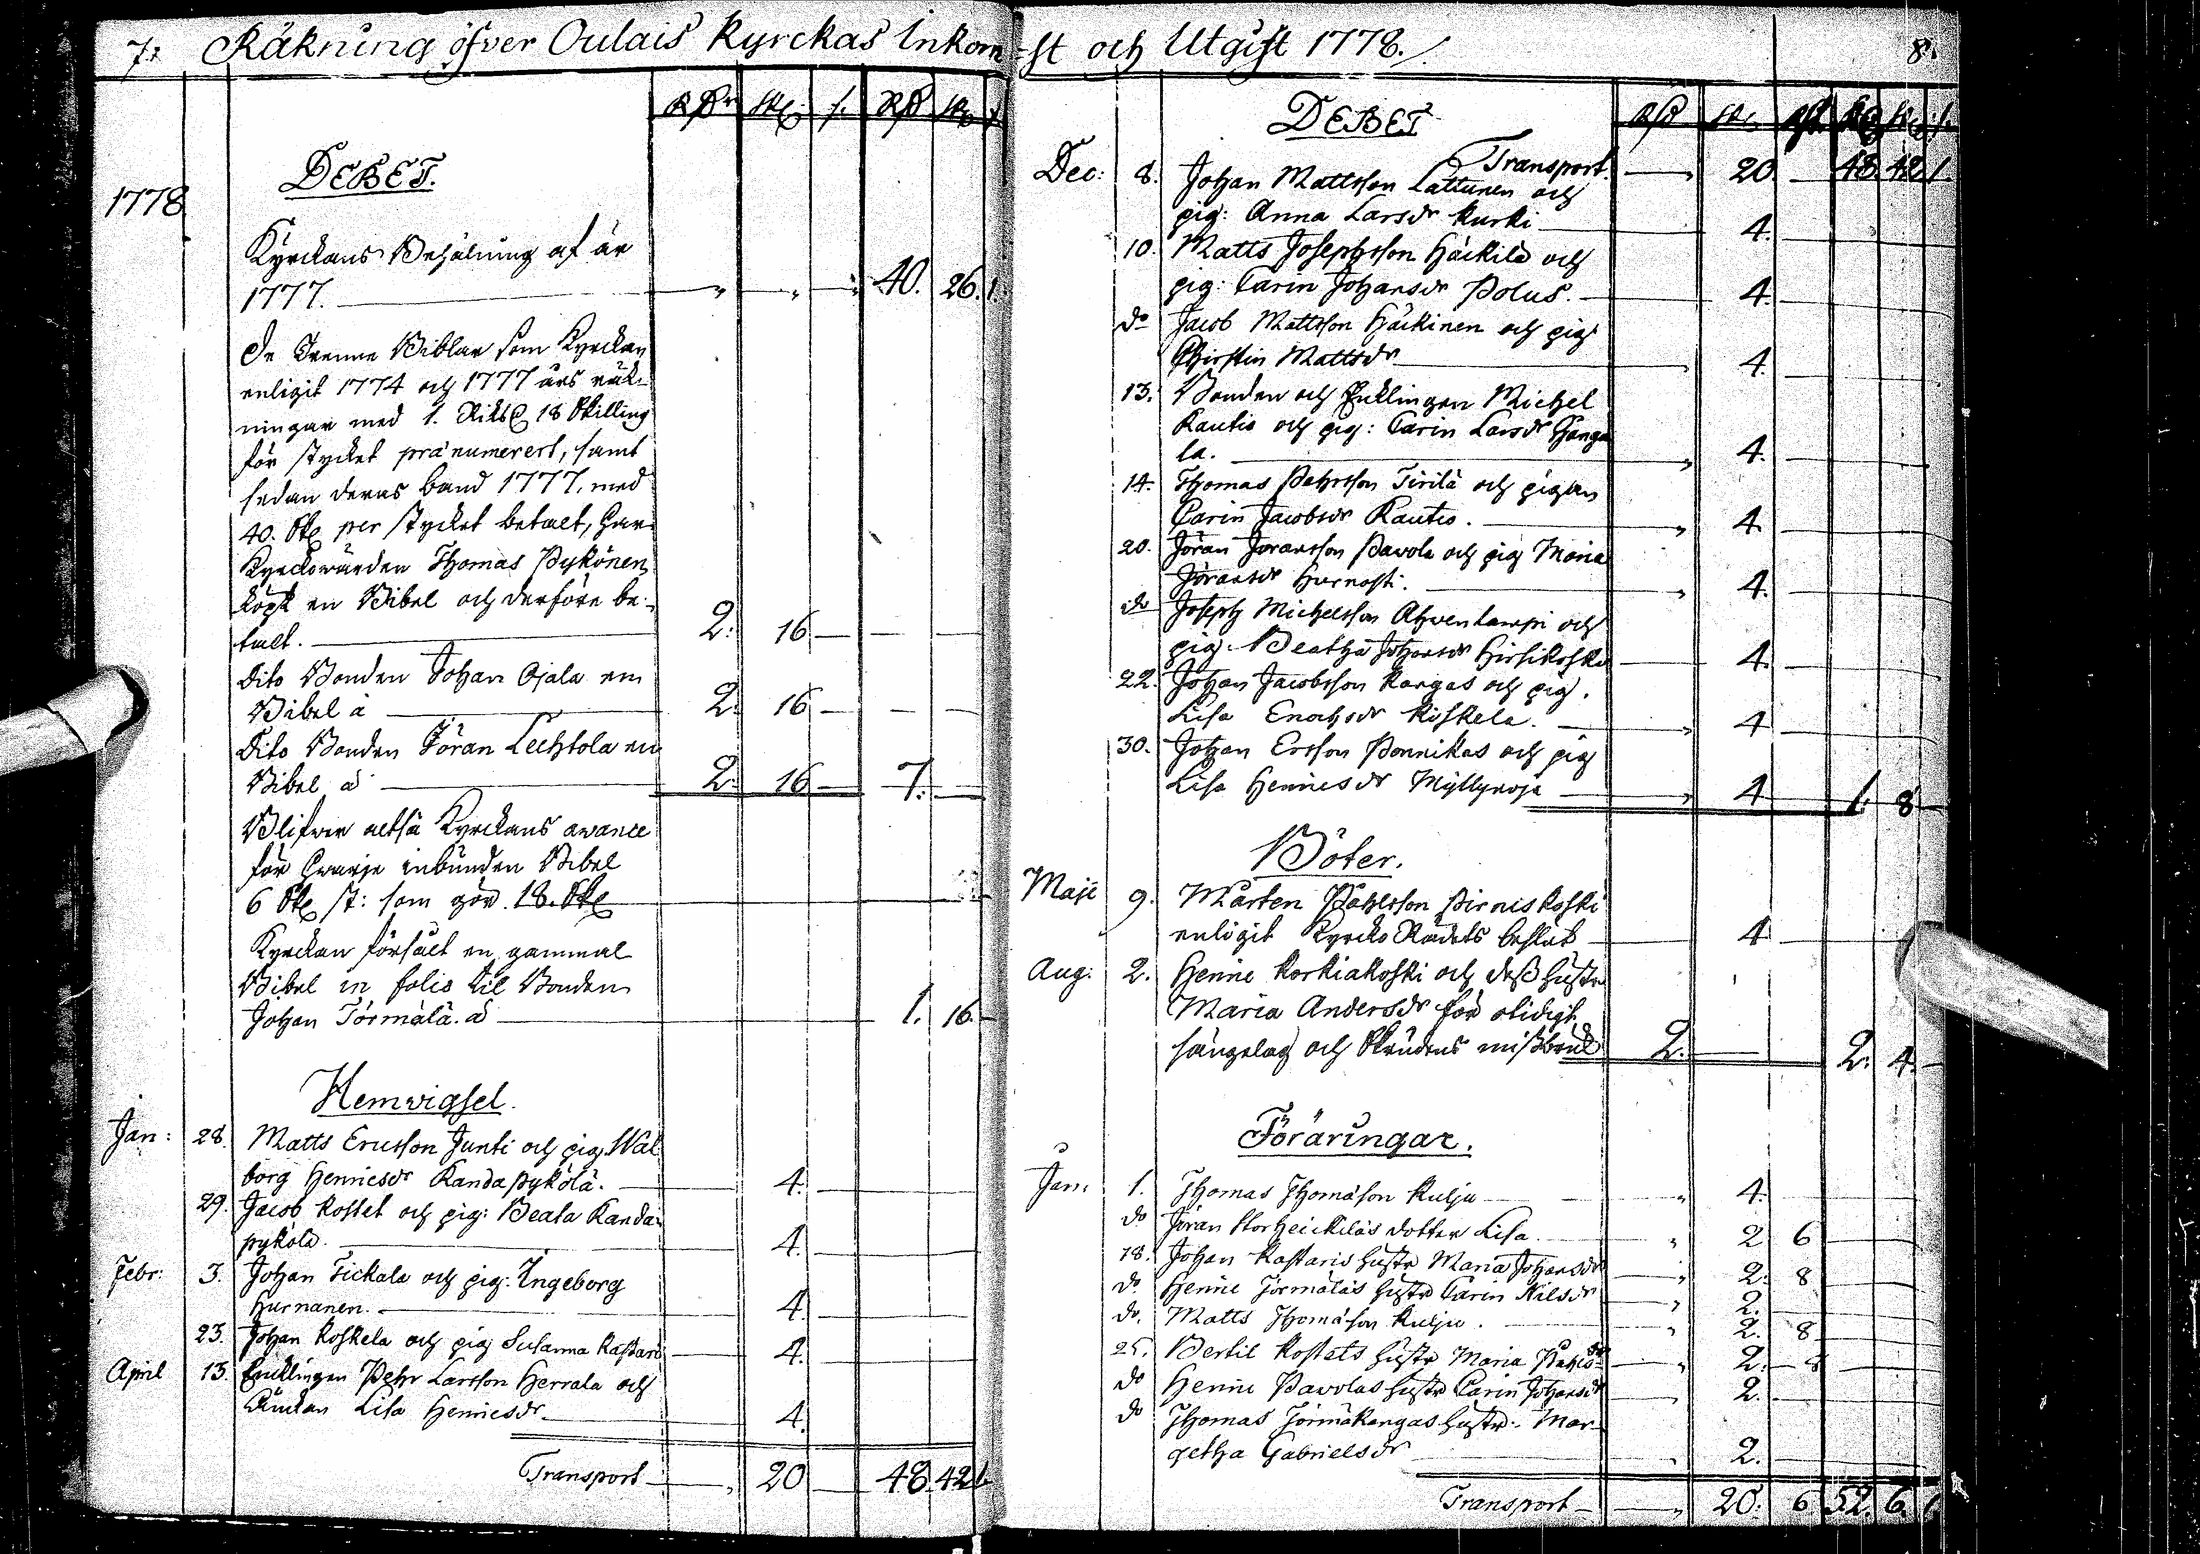 7. Räkning öfver Oulais Kyrckas Inkom-
Rdr Sk s. Rd Sk s
DEBET.
1778
Kyrckans Behålning af år
1777. " " " 40. 26. 1.
De Trenne Biblar som Kyrckan
enligit 1774 och 1777 års räk-
ningar med 1. Riksd 18 Skilling
för stycket prænumerert, samt
sedan deras band 1777. med
40. Sk per stycket betalt, har
Kyrckowärden Thomas Pykönen
köpt en Bibel och derföre be-
talt. 2. 16
Dito Bonden Johan Ojala en
Bibel à 2. 16
Dito Bonden Jöran Lechtola en
Bibel à 2. 16 7.
Blifver altså Kyrckans avance
för hvarje inbunden Bibel
6 Sk st: som gör 18. Sk
Kyrckan försålt en gammal
Bibel in folio til Bonden
Johan Törmälä. à 1. 16.
Hemvigsel.
Jan: 28. Matts Ericsson Junti och pig. Wal
borg Henricsdr Kandapykölä. 4.
29. Jacob Kostet och pig: Beata Kanda-
pykölä. 4.
Febr: 3. Johan Tickala och pig: Ingeborg
Hurnanen. 4.
23. Johan Koskela och pig Susanna Kastari 4.
April 13. Enklingen Pehr Larsson Herrala och
Änckan Lisa Henricsdr 4.
Transport " 20 48. 42 1.
-st och Utgift 1778. 8.
DEBET
Rd Sk Rst Rd Sk s.
Transport. " 20. 48 42 1.
Dec: 8. Johan Mattsson Lattunen och
pig: Anna Larsdr Kurki 4.
10. Matts Josephsson Häckilä och
pig: Carin Johansdr Polus. 4.
do Jacob Mattsson Häckinen och pig
Christin Mattsdr " 4.
13. Bonden och Enklingen Michel
Rautio och pig: Carin Larsdr Hanga
la. " 4.
14. Thomas Pehrsson Tirilä och pigan
Carin Jacobsdr Rautio. " 4.
20. Jöran Joransson Pavola och pig Maria
Jöransdr Hurnasti. " 4.
do Joseph Michelsson Ahvenlampi och
pig. Beatha Johansdr Hirsikoski 4.
22. Johan Jacobsson Kangas och pig.
Lisa Enochsdr Kiskela. " 4
30. Johan Ersson Ponnikas och pig
Lisa Henricsdr Myllynoja " 4 1. 8
Böter.
Maji 9. Mårten Påhlsson Pirneskoski
enligit Kyrcko Rådets beslut 4
Aug. 2. Henric Korkiakoski och dess hustru
Maria Andersdr för otidigt
sängelag och Skrudens missbruk 2. 2. 4.
Föräringar.
Jan. 1. Thomas Thomason Kulju " 4.
do Jöran Storheickiläs dotter Lisa. " 2 6
18. Johan Kastaris hustr Maria Johansdr " 2. 8
do Henric Törmäläs hustr Carin Nilsdr " 2.
do. Matts Thomason Kulju. " 2. 8
25. Bertil Kostets hustr Maria Påhlsdr " 2. 8
do Henric Pavolas hustr Carin Johansdr 2.
do Thomas Törmäkangas hustr. Mar-
getha Gabrielsdr 2.
Transport " 20. 6 52. 6. 1.